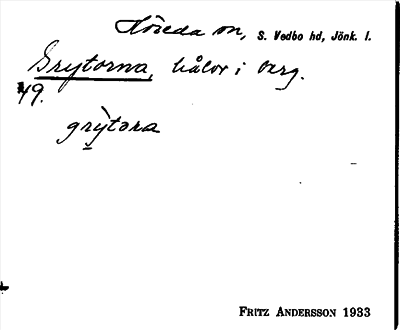 Höreda sn, S. Vedbo hd, Jönk. l.
Grytorna, hålor i berg.
49.
grỳtəra
FRITZ ANDERSSON 1933